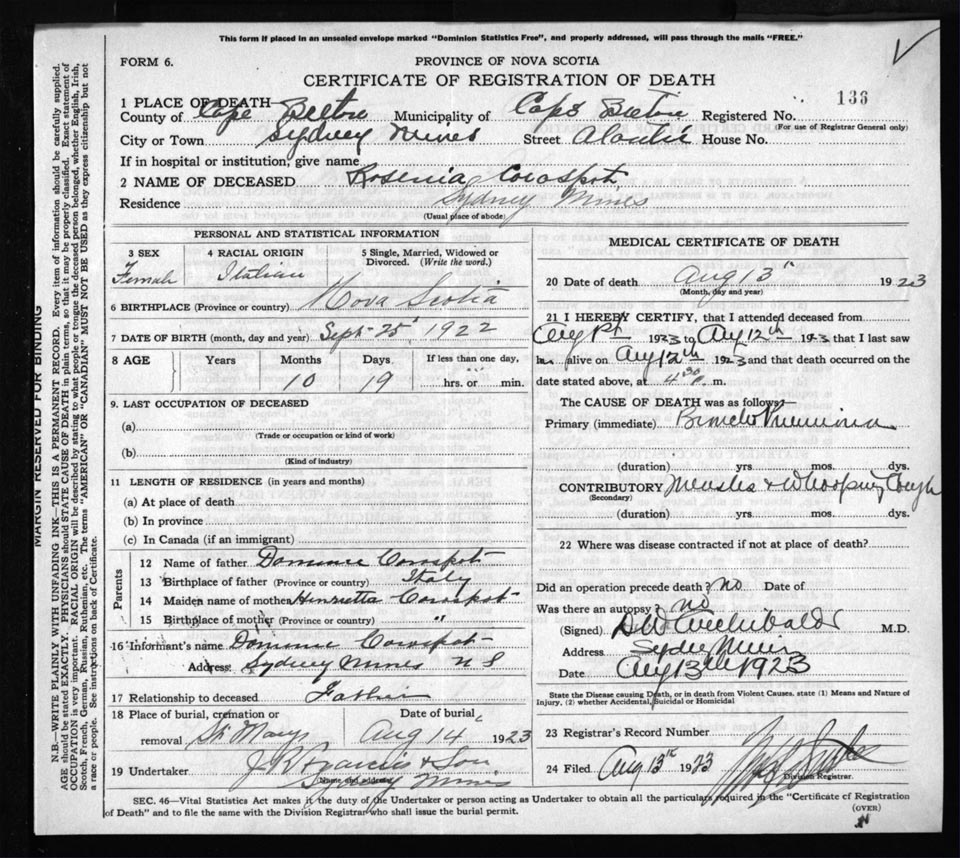 This form if placed in an unsealed envelope marked "Dominion Statistics Free", and properly addressed, will pass through the mails "FREE."
FORM 6.
PROVINCE OF NOVA SCOTIA
CERTIFICATE OF REGISTRATION OF DEATH
136
1 PLACE OF DEATH
County of Cape Breton Municipality of Cape Breton Registered No.
(For use of Registrar General only)
City or Town Sydney Mines Street Atlantic House No.
If in hospital or institution, give name
2 NAME OF DECEASED Rosenia
Residence Sydney Mines
(Usual place of abode)
PERSONAL AND STATISTICAL INFORMATION
3 SEX
4 RACIAL ORIGIN
5 Single, Married, Widowed or Divorced. (Write the word.)
Female
Italian
6 BIRTHPLACE (Province or country) Nova Scotia
7 DATE OF BIRTH (month, day and year) Sept 25 1922
8 AGE Years Months Days If less than one day,
10 19 hrs. or min.
9. LAST OCCUPATION OF DECEASED
(a)
(Trade or occupation or kind of work)
(b)
(Kind of industry)
11 LENGTH OF RESIDENCE (in years and months)
(a) At place of death
(b) In province
(c) In Canada (if an immigrant)
Parents
12 Name of father Dominic
13 Birthplace of father (Province or country) Italy
14 Maiden name of mother Henrietta
15 Birthplace of mother (Province or country) "
16 Informant's name Dominic
Address Sydney Mines N S
17 Relationship to deceased Father
18 Place of burial, cremation or removal St Marys
Date of burial Aug 14 1923
19 Undertaker J R Francis & Son
Sydney Mines
MEDICAL CERTIFICATE OF DEATH
20 Date of death Aug 13th 1923
(Month, day and year)
21 I HEREBY CERTIFY, that I attended deceased from
Aug 1st 1923 to Aug 12th 1923 that I last saw
her alive on Aug 12th 1923 and that death occurred on the
date stated above, at 4 30 m.
The CAUSE OF DEATH was as follows:
Primary (immediate) Broncho Pneumonia
(duration) yrs. mos. dys.
CONTRIBUTORY Measles & Whooping Cough
(Secondary)
(duration) yrs. mos. dys.
22 Where was disease contracted if not at place of death?
Did an operation precede death? no Date of
Was there an autopsy? no
(Signed) Archibald M.D.
Address Sydney Mines
Date Aug 13th 1923
State the Disease causing Death, or in death from Violent Causes, state (1) Means and Nature of
Injury, (2) whether Accidental, Suicidal or Homicidal
23 Registrar's Record Number
24 Filed Aug 13th 1923
Division Registrar.
SEC. 46—Vital Statistics Act makes it the duty of the Undertaker or person acting as Undertaker to obtain all the particulars required in the "Certificate of Registration
of Death" and to file the same with the Division Registrar who shall issue the burial permit.
(OVER)
MARGIN RESERVED FOR BINDING
N.B.—WRITE PLAINLY WITH UNFADING INK—THIS IS A PERMANENT RECORD. Every item of information should be carefully supplied.
AGE should be stated EXACTLY. PHYSICIANS should STATE CAUSE OF DEATH in plain terms, so that it may be properly classified. Exact statement of
OCCUPATION is very important. RACIAL ORIGIN will be described by stating to what people or tongue the deceased person belonged, whether English, Irish,
Scotch, French, German, Russian, Ruthenian, etc. The terms "AMERICAN" OR "CANADIAN" MUST NOT BE USED as they express citizenship but not
a race or people. See instructions on back of Certificate.